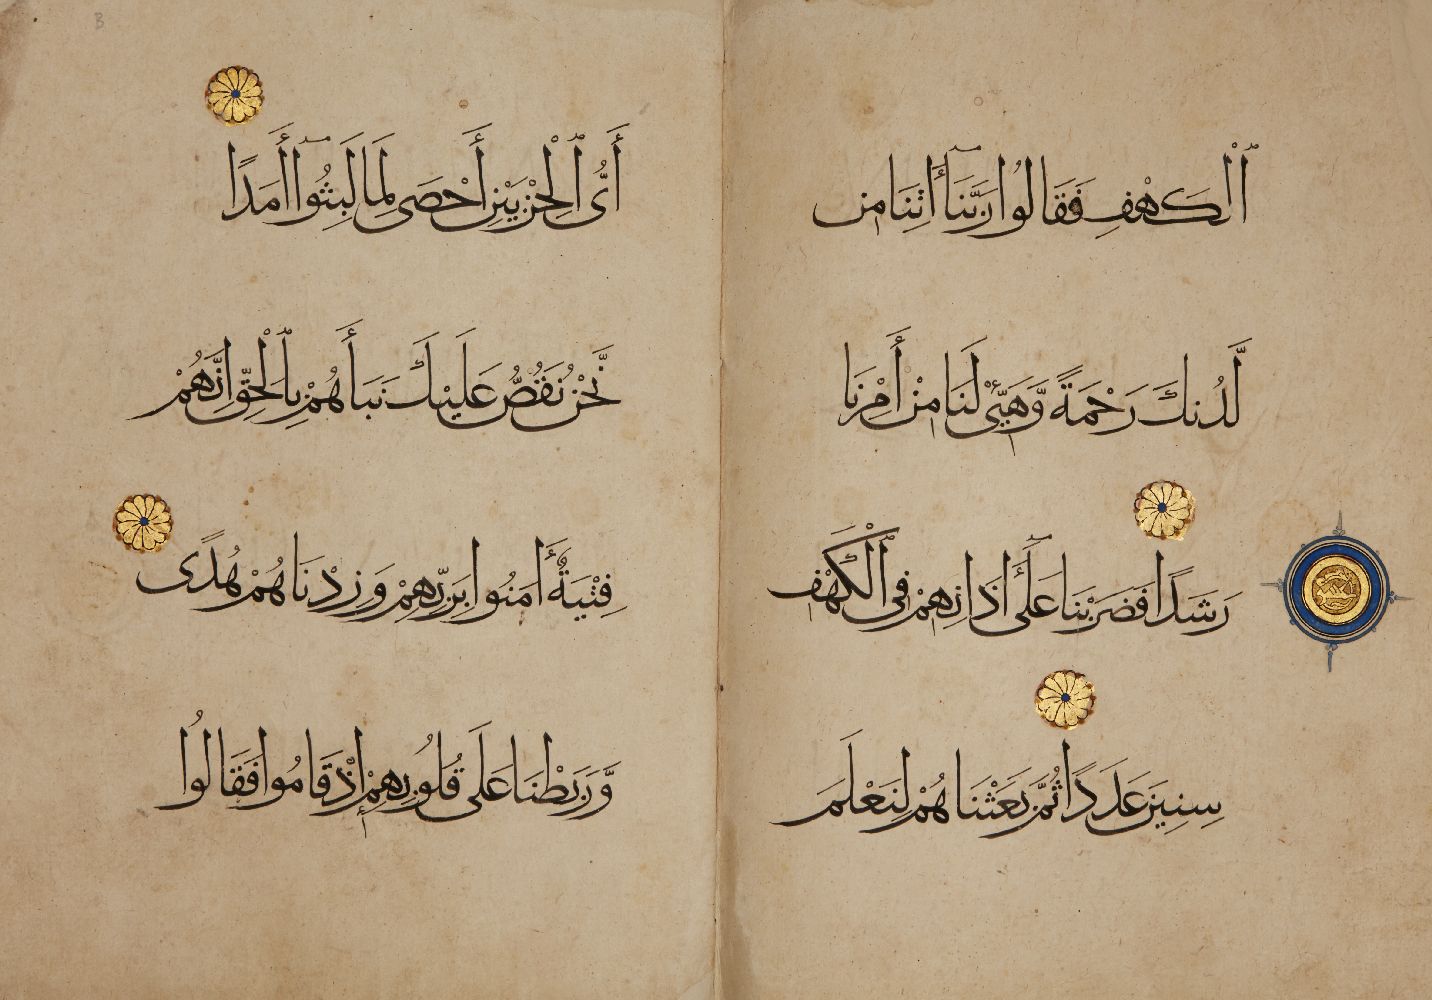 ٱلْكَهْفِ فَقَالُوا رَبَّنَآ أٰتِنَا مِن
لَّدُنكَ رَحْمَةً وَّهَيِّئْ لَنَا مِنْ أَمْرِنَا
رَشَدًا فَضَرَبْنَا عَلَىٰٓ أٰذَانِهِمْ فِي ٱلْكَهْفِ
سِنِينَ عَدَدًا ثُمَّ بَعَثْنَاهُمْ لِنَعْلَمَ
أَيُّ ٱلْحِزْبَيْنِ أَحْصَى لِمَا لَبِثُوٓا أَمَدًا
نَّحْنُ نَقُصُّ عَلَيْكَ نَبَأَهُمْ بِٱلْحَقِّ إِنَّهُمْ
فِتْيَةٌ أٰمَنُوا بِرَبِّهِمْ وَزِدْنَاهُمْ هُدًى
وَّرَبَطْنَا عَلَى قُلُوبِهِمْ إِذْ قَامُوا فَقَالُوا